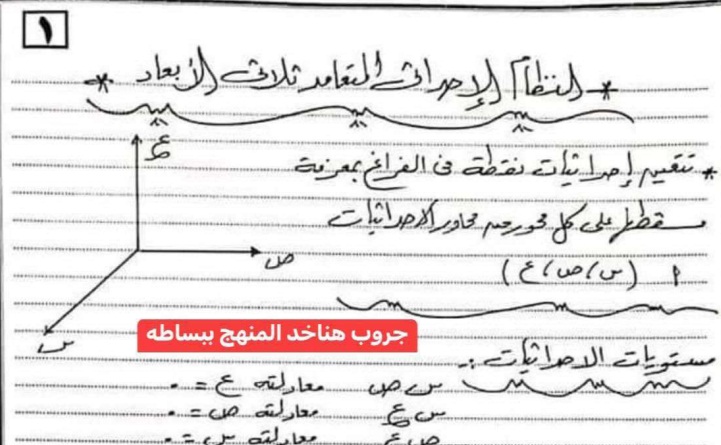 ١
* النظام الإحداثى المتعامد ثلاثى الأبعاد *
* تتعين إحداثيات نقطة فى الفراغ بمعرفة
مسقطها على كل محور من محاور الاحداثيات
ا (س ، ص ، ع)
ع
ص
س
جروب هناخد المنهج ببساطه
مستويات الاحداثيات :-
س ص معادلته ع = ٠
س ع معادلته ص = ٠
ص ع معادلته س = ٠